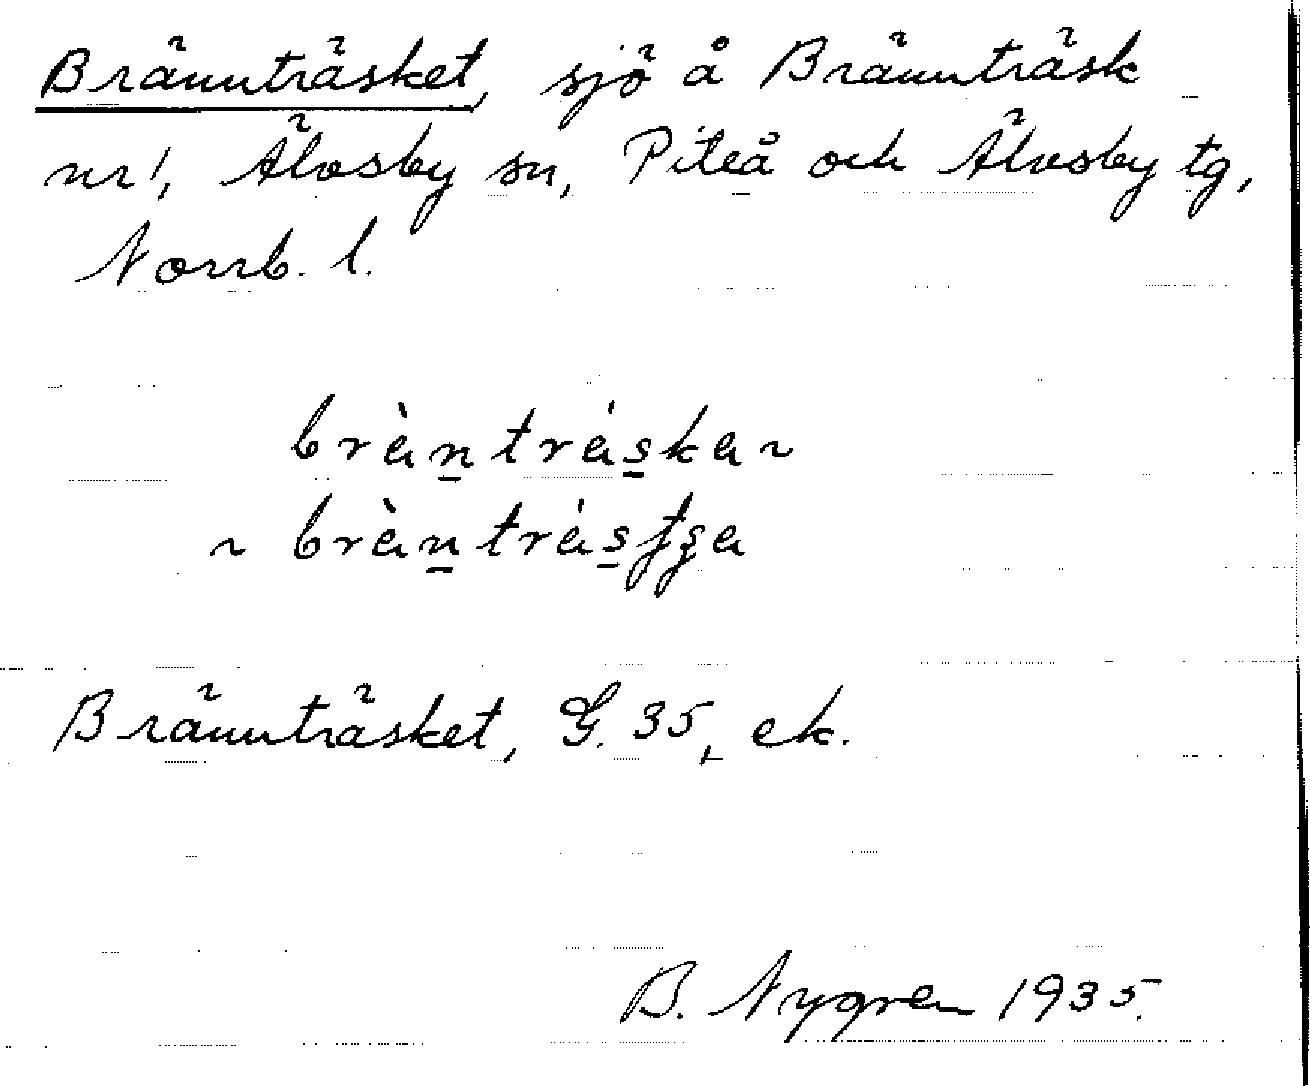 Brännträsket, sjö å Brännträsk
nr 1, Älvsby sn, Piteå och Älvsby tg,
Norrb. l.
bràntráska ~
~ bràntrás
Brännträsket, G. 35, ek.
B. Nygren 1935.